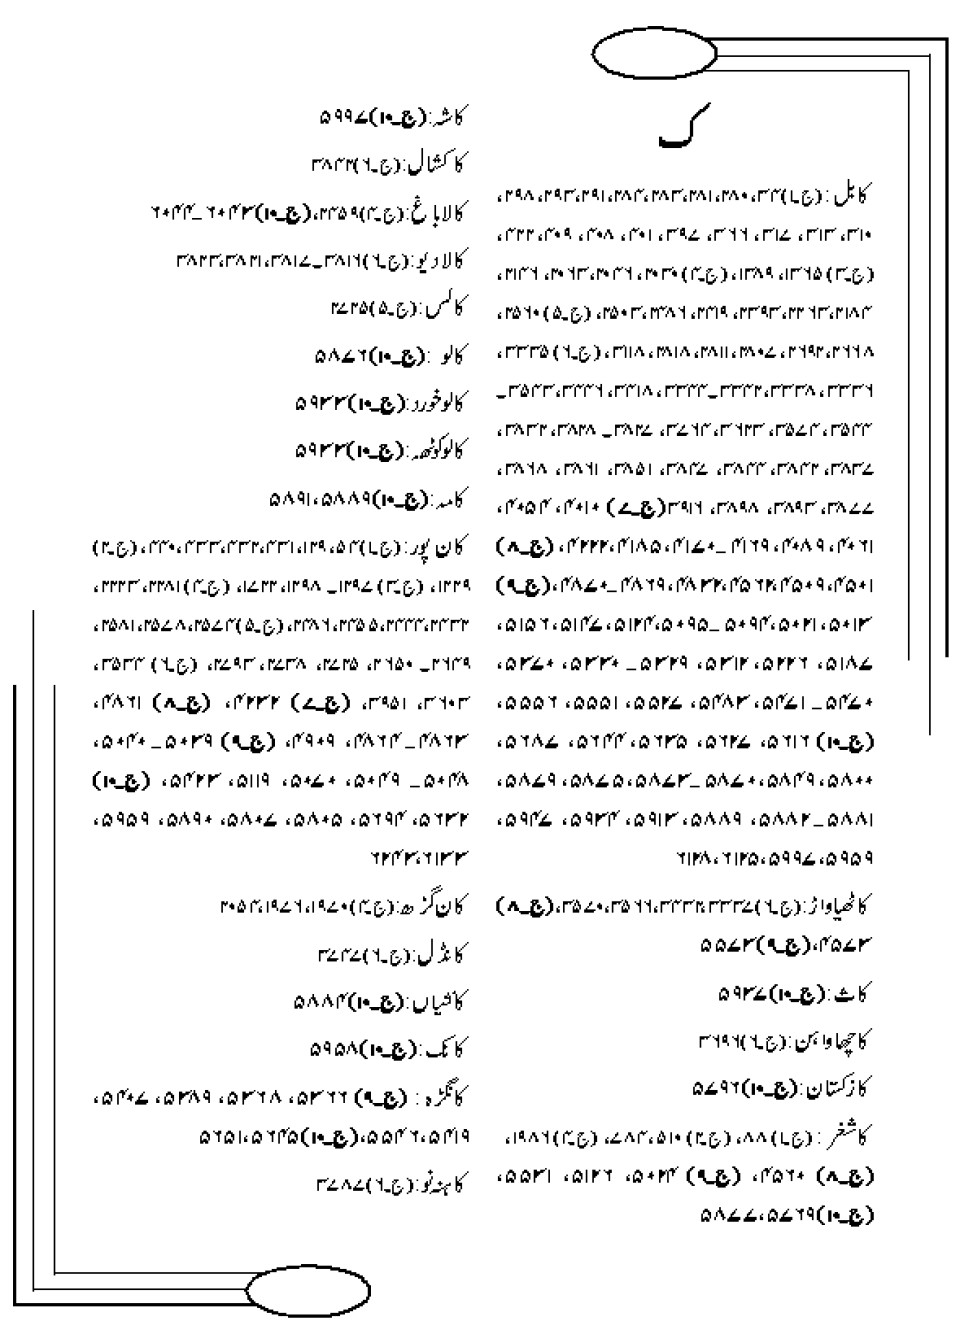 ک
کابل:(ج۔۱)۳۴، ۲۸۰، ۲۸۱، ۲۸۳، ۲۸۴، ۲۹۱، ۲۹۳، ۲۹۸،
۳۱۰، ۳۱۳، ۳۱۷، ۳۶۶، ۳۹۷، ۴۰۱، ۴۰۸، ۴۰۹، ۴۲۲،
(ج۔۳)۱۳۶۵، ۱۳۸۹، (ج۔۴)۲۰۳۰، ۲۰۴۶، ۲۰۶۳، ۲۱۴۶،
۲۱۸۳، ۲۲۶۳، ۲۳۹۳، ۲۴۱۹، ۲۴۸۶، ۲۵۰۳، (ج۔۵)۲۵۶۰،
۲۶۶۸، ۲۶۹۲، ۲۸۰۷، ۲۸۱۱، ۲۸۱۸، ۳۱۱۸، (ج۔۶)۳۳۳۵،
۳۳۳۶، ۳۳۳۸، ۳۳۴۲۔۳۳۴۴، ۳۴۱۸، ۳۴۴۶، ۳۵۴۳۔
۳۵۴۴، ۳۵۷۴، ۳۶۲۳، ۳۷۶۴، ۳۸۲۷۔ ۳۸۲۸، ۳۸۳۲،
۳۸۳۷، ۳۸۴۲، ۳۸۴۴، ۳۸۴۷، ۳۸۵۱، ۳۸۶۱، ۳۸۶۸،
۳۸۷۷، ۳۸۹۳، ۳۸۹۸، ۳۹۱۶(ج۔۷) ۴۰۱۰، ۴۰۵۴،
۴۰۶۱، ۴۰۸۹، ۴۱۶۹۔ ۴۱۷۰، ۴۱۸۵، ۴۲۲۲، (ج۔۸)
۴۵۰۱، ۴۵۰۹، ۴۵۶۲، ۴۸۳۲، ۴۸۶۹۔۴۸۷۰، (ج۔۹)
۵۰۱۳، ۵۰۲۱، ۵۰۹۴۔ ۵۰۹۵، ۵۱۲۴، ۵۱۴۷، ۵۱۵۶،
۵۱۸۷، ۵۲۲۶، ۵۳۱۲، ۵۳۲۹۔ ۵۳۳۰، ۵۳۷۰،
۵۴۷۰۔ ۵۴۷۱، ۵۴۸۳، ۵۵۲۷، ۵۵۵۱، ۵۵۵۶،
(ج۔۱۰) ۵۶۱۶، ۵۶۲۷، ۵۶۳۵، ۵۶۴۴، ۵۶۸۷،
۵۸۰۰، ۵۸۴۹، ۵۸۷۰۔ ۵۸۷۳، ۵۸۷۵، ۵۸۷۹،
۵۸۸۱۔ ۵۸۸۲، ۵۸۸۹، ۵۹۱۳، ۵۹۳۴، ۵۹۴۷،
۵۹۵۹، ۵۹۹۷، ۶۱۲۵، ۶۱۲۸
کاٹھیاواڑ:(ج۔۶)۳۳۳۷، ۳۴۴۲، ۳۵۶۶، ۳۵۷۰، (ج۔۸)
۴۵۷۳، (ج۔۹)۵۵۷۳
کاث:(ج۔۱۰)۵۹۳۷
کاچھاواہن:(ج۔۶)۳۶۹۶
کازکستان:(ج۔۱۰)۵۷۹۶
کاشغر:(ج۔۱)۸۸، (ج۔۲)۵۱۰، ۷۸۴، (ج۔۴)۱۹۸۶،
(ج۔۸) ۴۵۶۰، (ج۔۹) ۵۰۲۴، ۵۱۲۶، ۵۵۳۱،
(ج۔۱۰)۵۷۶۹، ۵۸۷۷
کاشہ:(ج۔۱۰)۵۹۹۷
کاکشال:(ج۔۶)۳۸۴۲
کالاباغ:(ج۔۴)۲۴۵۹، (ج۔۱۰)۶۰۴۳۔ ۶۰۴۴
کالادیو:(ج۔۶)۳۸۱۶۔ ۳۸۱۷، ۳۸۲۱، ۳۸۲۳
کالس:(ج۔۵)۲۷۲۵
کالو :(ج۔۱۰)۵۸۷۶
کالوخورد:(ج۔۱۰)۵۹۳۳
کالوکوٹھہ:(ج۔۱۰)۵۹۳۳
کامہ:(ج۔۱۰)۵۸۸۹، ۵۸۹۱
کان پور:(ج۔۱)۵۴، ۱۲۹، ۲۳۱، ۲۳۲، ۲۳۳، ۲۴۰، (ج۔۲)
۱۲۲۹، (ج۔۳)۱۲۹۷۔ ۱۲۹۸، ۱۷۲۲، (ج۔۴)۲۲۸۱، ۲۲۲۳،
۲۲۳۲، ۲۳۴۴، ۲۳۵۵، ۲۴۸۶، (ج۔۵)۲۵۷۴، ۲۵۷۸، ۲۵۸۱،
۲۶۴۹۔ ۲۶۵۰، ۲۷۲۵، ۲۷۳۸، ۲۷۹۳، (ج۔۶) ۳۵۳۳،
۳۶۰۳، ۳۹۵۱، (ج۔۷) ۴۲۳۲، (ج۔۸) ۴۸۶۱،
۴۸۶۳۔ ۴۸۶۴، ۴۹۰۹، (ج۔۹) ۵۰۳۹۔ ۵۰۴۰،
۵۰۴۸۔ ۵۰۴۹، ۵۰۷۰، ۵۱۱۹، ۵۴۲۳، (ج۔۱۰)
۵۶۳۲، ۵۶۹۴، ۵۸۰۵، ۵۸۰۷، ۵۸۹۰، ۵۹۵۹،
۶۱۳۳، ۶۲۴۳
کان گڑھ:(ج۔۴)۱۹۷۰، ۱۹۷۶، ۲۰۵۴
کانڈل:(ج۔۶)۳۷۴۷
کانسیاں:(ج۔۱۰)۵۸۸۴
کانک:(ج۔۱۰)۵۹۵۸
کانگڑہ: (ج۔۹) ۵۳۶۶، ۵۳۶۸، ۵۳۸۹، ۵۴۰۷،
۵۴۱۹، ۵۵۴۶، (ج۔۱۰)۵۶۴۵، ۵۶۵۱
کاہنہ نو:(ج۔۶)۳۷۸۷